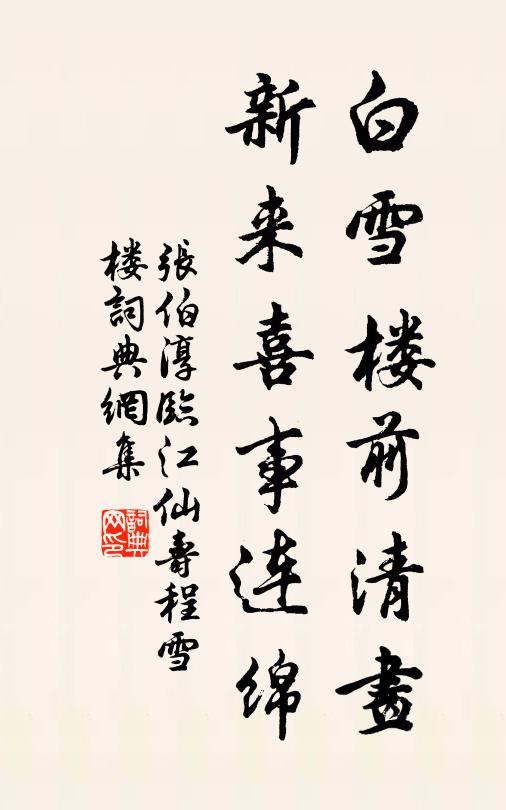 白雪楼前清畫
新来喜事连绵
張伯淳臨江仙壽程雪
楼詞典網集
詞典
网印